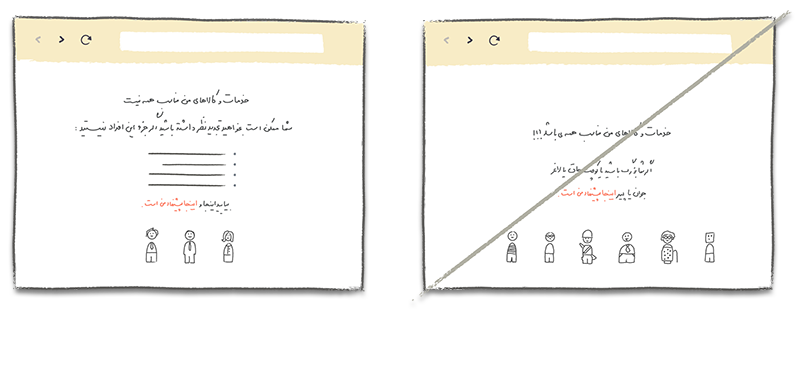 خدمات و کالاهای من مناسب همه نیست
شما ممکن است بخواهید تجدید نظر داشته باشید اگر جزو این افراد نیستید :
بیایید اینجا، اینجا پیشنهاد من است.
خدمات و کالاهای من مناسب همه می باشد!!!
اگر شما بزرگ باشید یا کوچک چاق یا لاغر
جوان یا پیر اینجا پیشنهاد من است.